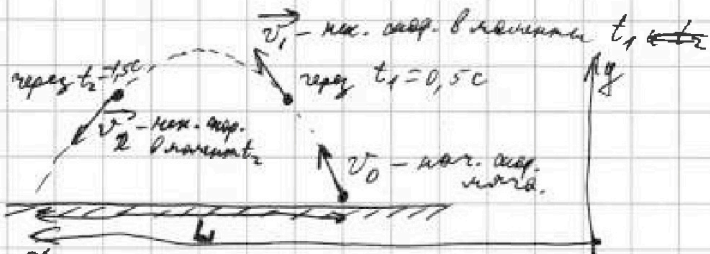 v₁ - нек. скор. в моменты t₁ и t₂
через t₂=1,5с
через t₁=0,5с
v₂ - нек. скор.
в момент t₂
v₀ - нач. скор.
мяча.
y
L
x